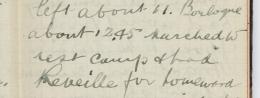 left about 11. Boulogne
about 12.45 marched to
rest camp & had
Reveille for homeward